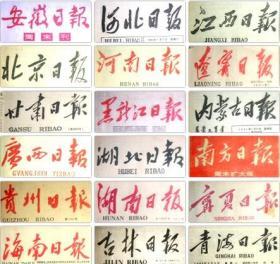 安徽日报
周末刊
河北日報
HEBEI RIBAO
江西日報
JIANGXI RIBAO
北京日報
河南日報
HENAN RIBAO
遼寧日報
LIAONING RIBAO
甘肃日報
GANSU RIBAO
黑龙江日報
内蒙古日報
廣西日報
GVANGJSIH YIZBAU
湖北日報
HUBEI RIBAO
南方日報
周末扩大版
貴州日報
GUIZHOU RIBAO
湖南日報
HUNAN RIBAO
寧夏日報
NINGXIA RIBAO
海南日報
吉林日報
JILIN RIBAO
青海日報
QINGHAI RIBAO